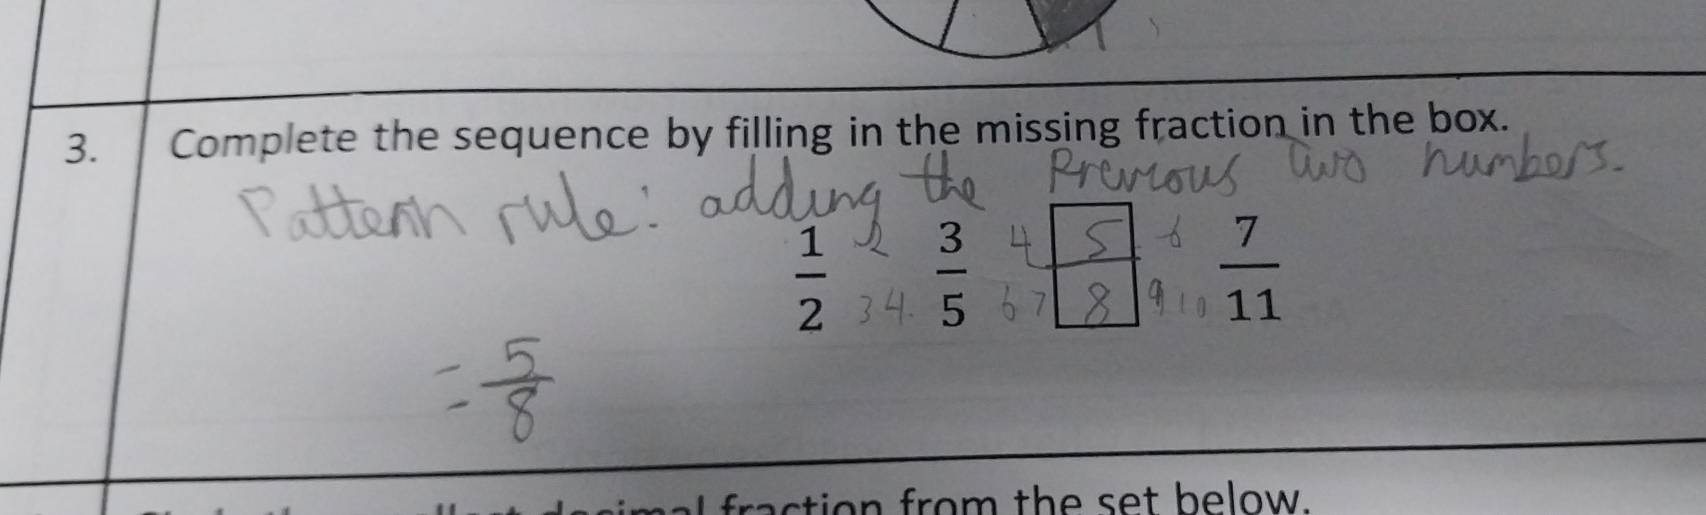 3. Complete the sequence by filling in the missing fraction in the box.
Pattern rule: adding the Previous two numbers.
1 2 3 4 5 6 7
2 3 4. 5 6 7 8 9 10 11
= 5
8
from the set below.